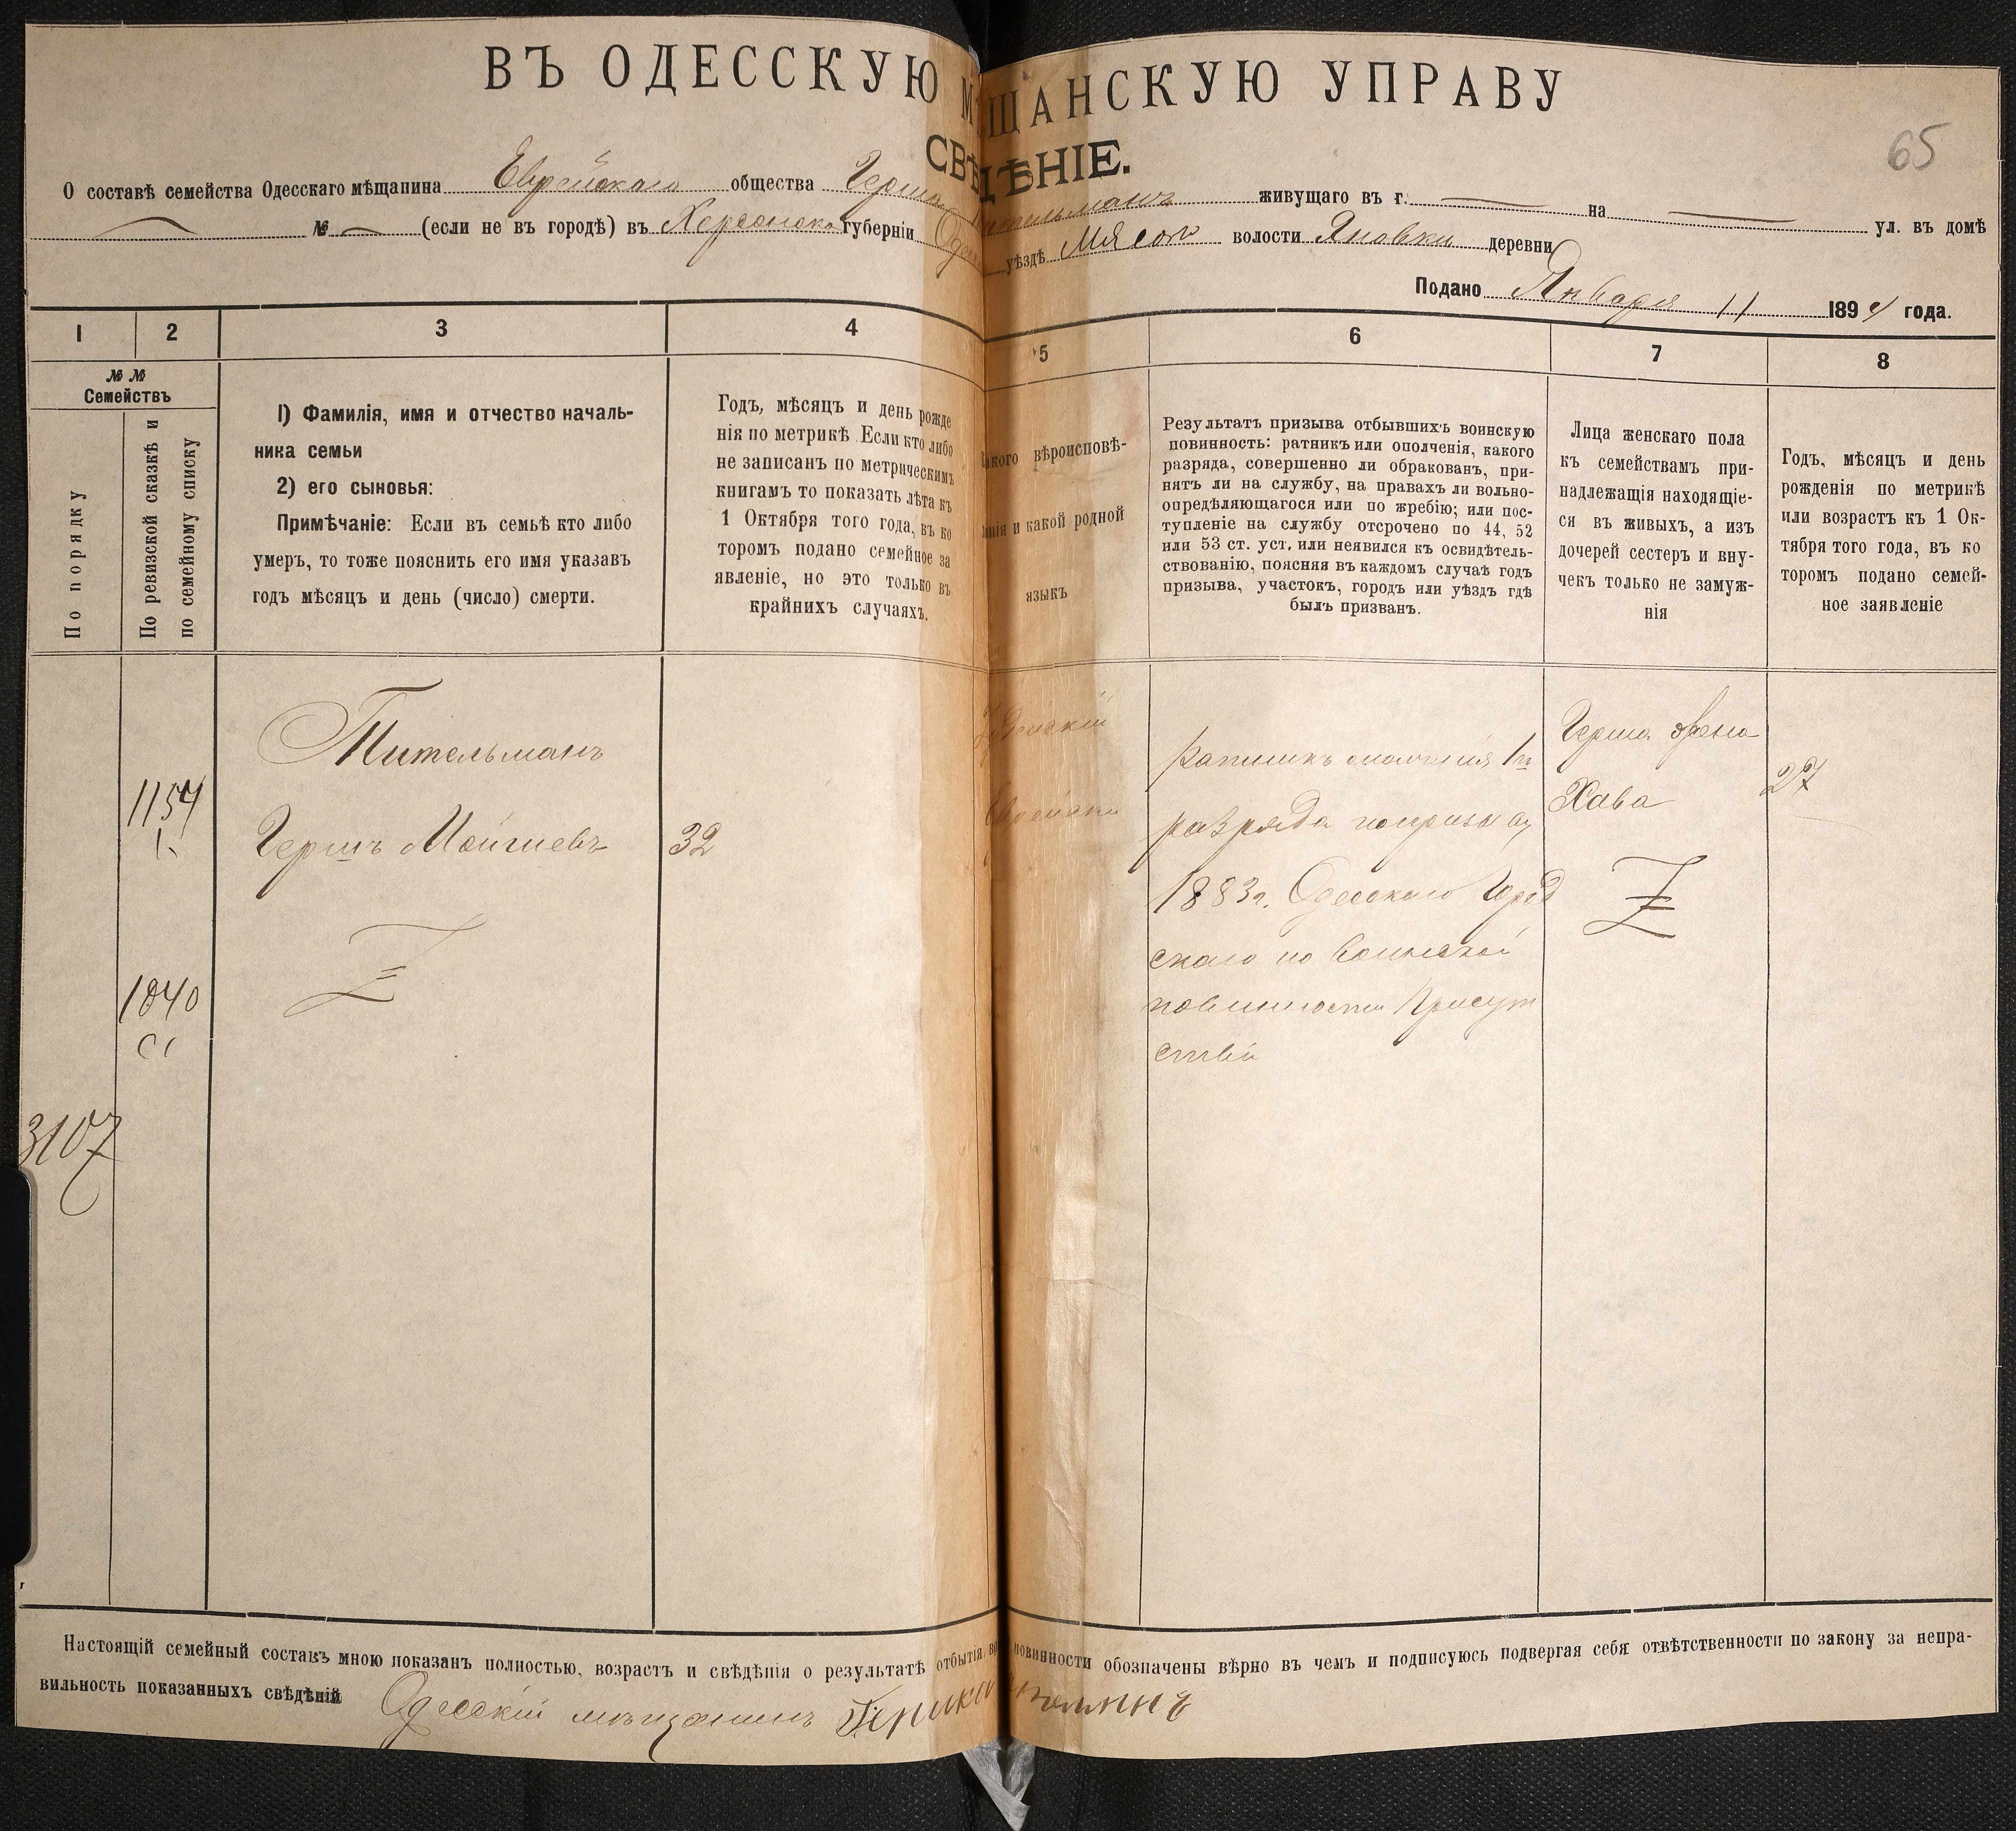 ВЪ ОДЕССКУЮ МѢЩАНСКУЮ УПРАВУ
СВѢДѢНІЕ.
65
О составѣ семейства Одесскаго мѣщанина Еврейскаго общества Герша Тительманъ живущаго въ г. — на — ул. въ домѣ
— № — (если не въ городѣ) въ Херсонско губерніи Одес уѣздѣ волости Яновки деревни
Подано Января 11 189 года.
1 2 3 4 5 6 7 8
№ №
Семействъ
По порядку
По ревизской сказкѣ и
по семейному списку
1) Фамилія, имя и отчество началь-
ника семьи
2) его сыновья:
Примѣчаніе: Если въ семьѣ кто либо
умеръ, то тоже пояснить его имя указавъ
годъ мѣсяцъ и день (число) смерти.
Годъ, мѣсяцъ и день рожде
нія по метрикѣ Если кто либо
не записанъ по метрическимъ
книгамъ то показать лѣта къ
1 Октября того года, въ ко
торомъ подано семейное за
явленіе, но это только въ
крайнихъ случаяхъ.
какого вѣроисповѣ-
данія и какой родной
языкъ
Результатъ призыва отбывшихъ воинскую
повинность: ратникъ или ополченія, какого
разряда, совершенно ли обракованъ, при-
нятъ ли на службу, на правахъ ли вольно-
опредѣляющагося или по жребію; или пос-
тупленіе на службу отсрочено по 44, 52
или 53 ст. уст. или неявился къ освидѣтель-
ствованію, поясняя въ каждомъ случаѣ годъ
призыва, участокъ, городъ или уѣздъ гдѣ
былъ призванъ.
Лица женскаго пола
къ семействамъ при-
надлежащія находящіе-
ся въ живыхъ, а изъ
дочерей сестеръ и вну-
чекъ только не замуж-
нія
Годъ, мѣсяцъ и день
рожденія по метрикѣ
или возрастъ къ 1 Ок-
тября того года, въ ко
торомъ подано семей-
ное заявленіе
Тительманъ
1154
Гершъ Мойшевъ 32
1040
3107
ратникъ ополченія 1го
разряда попризыву
1883г. Одесскаго Город
скаго по воинской
повинности Присут
ствія
Герша жена
Хава 27
Настоящій семейный составъ мною показанъ полностью, возрастъ и свѣдѣнія о результатѣ отбытія во повинности обозначены вѣрно въ чемъ и подписуюсь подвергая себя отвѣтственности по закону за непра-
вильность показанныхъ свѣдѣній Одесскій мѣщанинъ